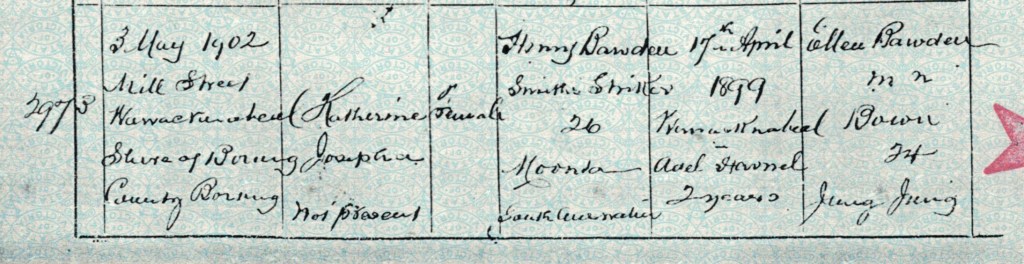 3 May 1902
Mill Street
Warracknabeal
Shire of Borung
County Borung
Katherine
Josepha
Not present
Female
Henry Bawden
Smiths Striker
26
Moonta
South Australia
17th April
1899
Warracknabeal
2 years
Ellen Bawden
m n
Bown
24
Jung Jung